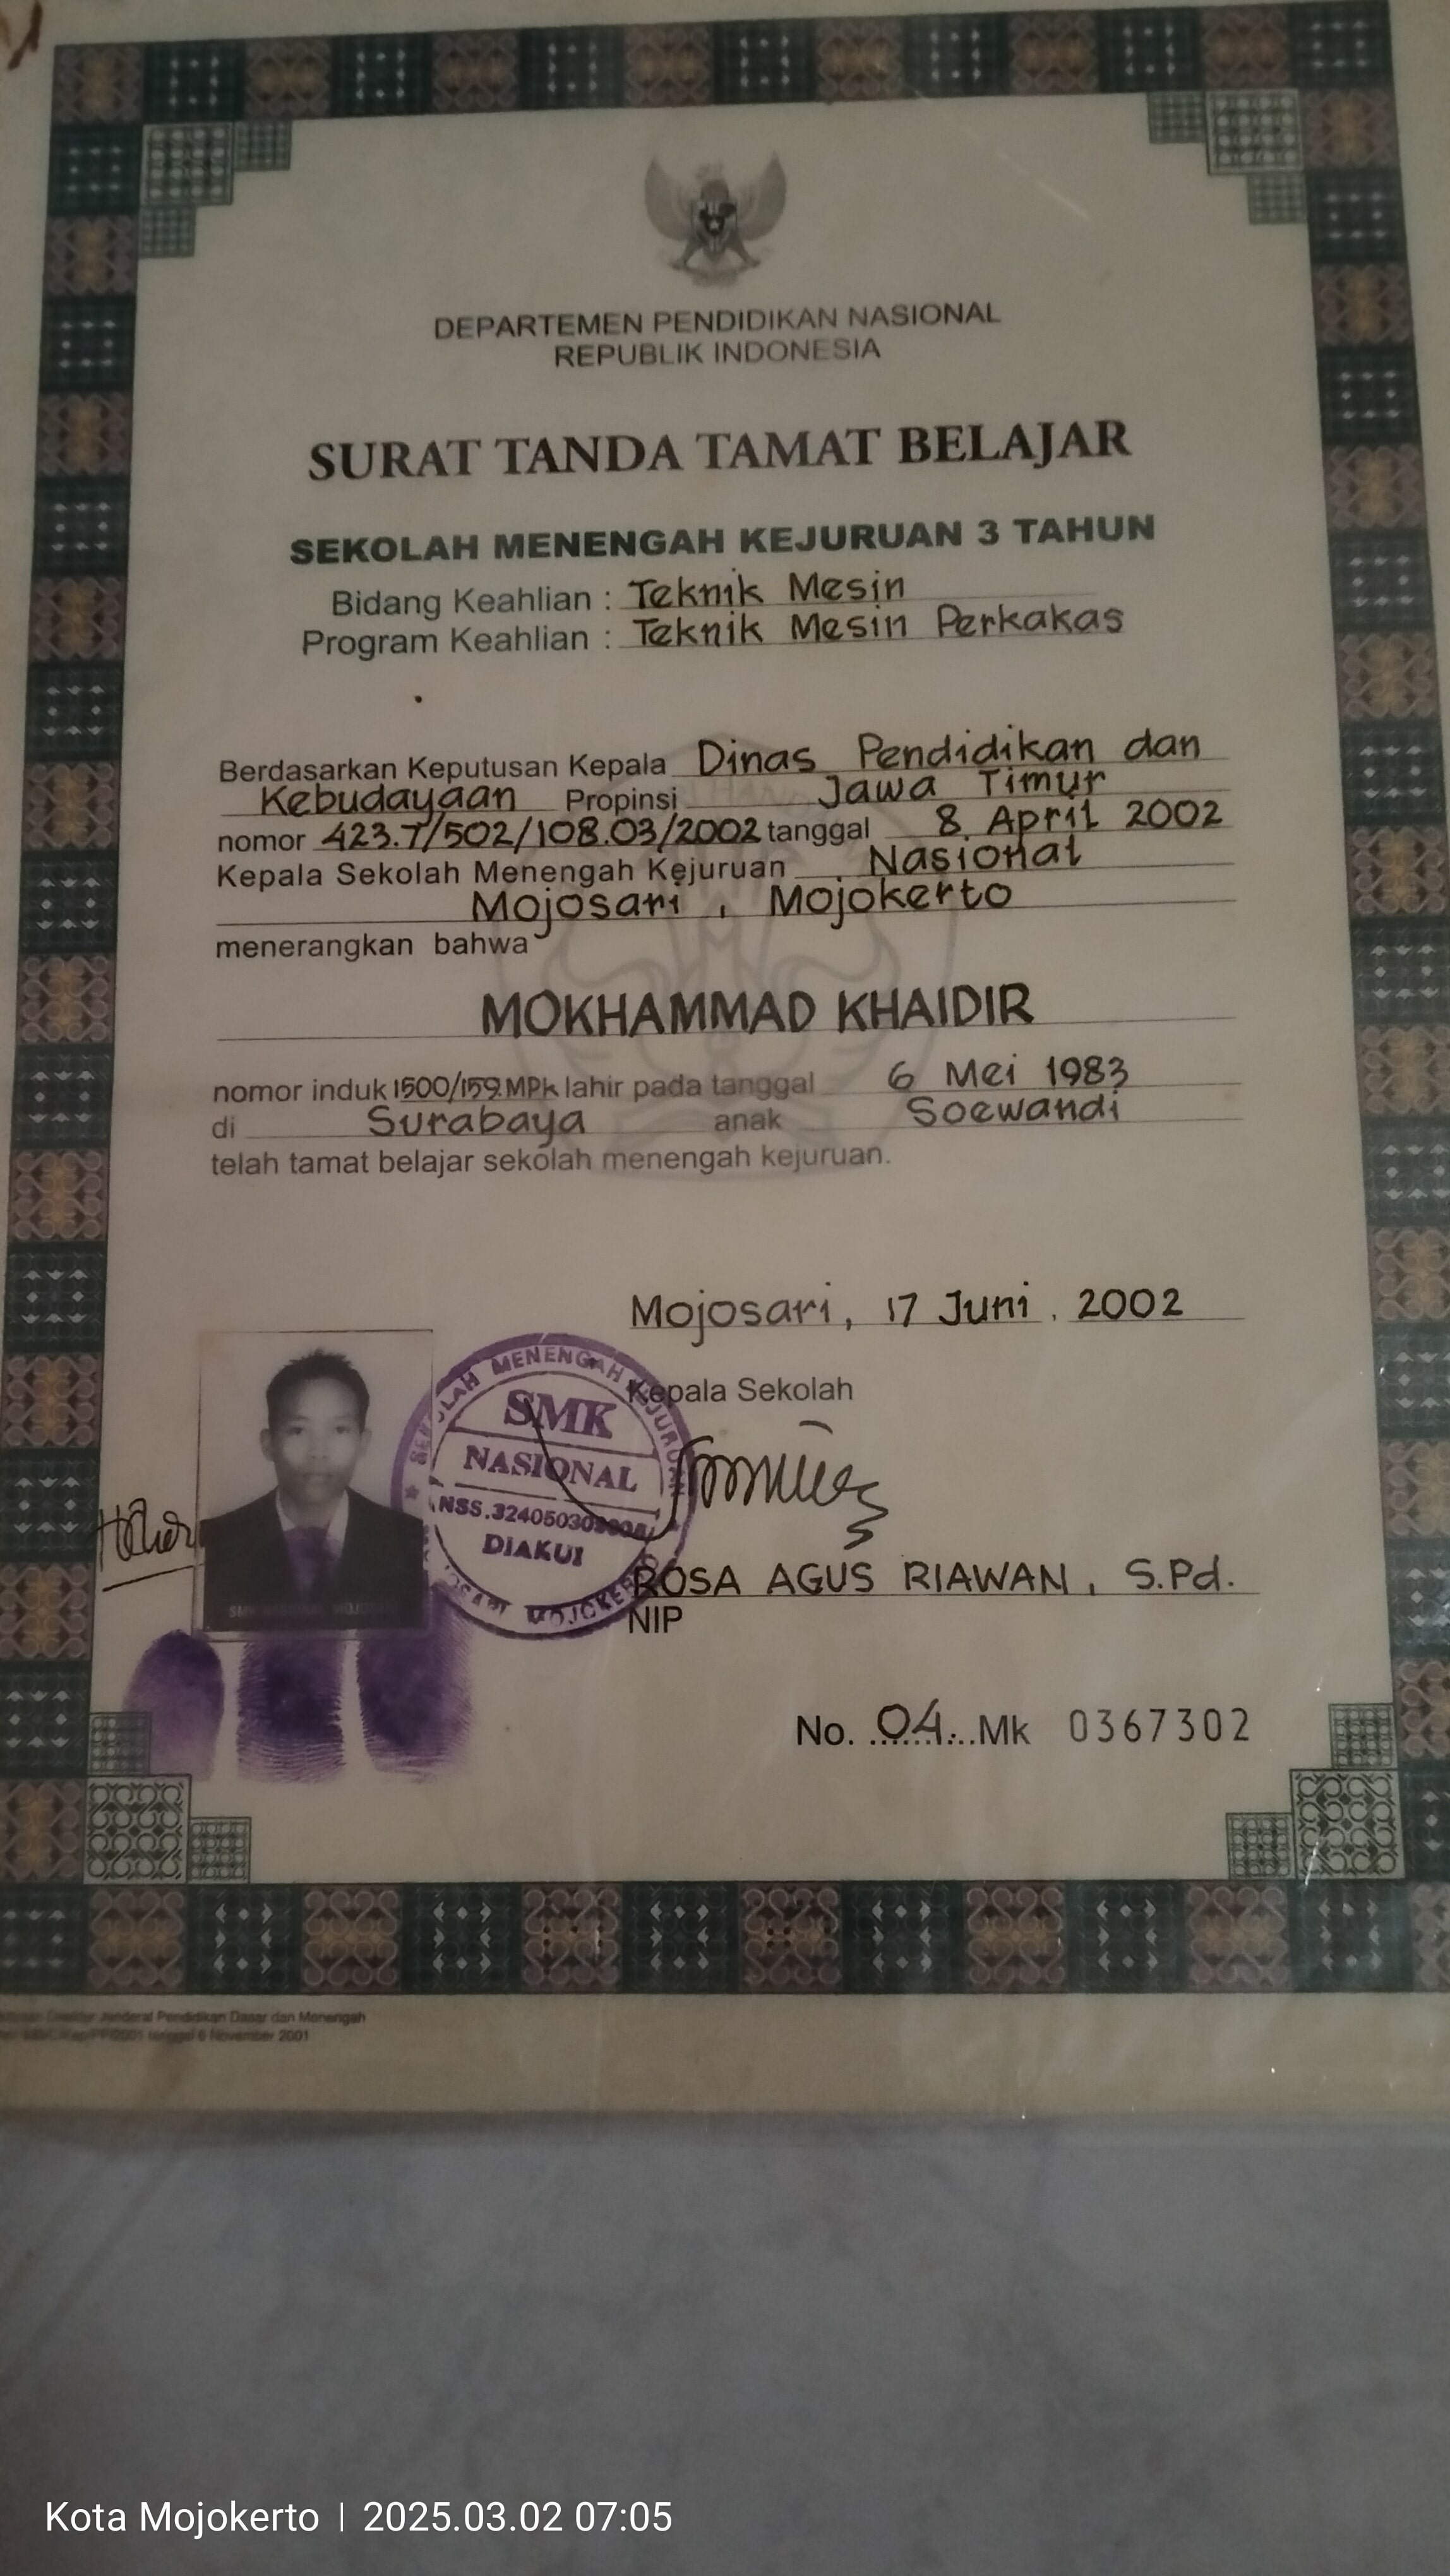 DEPARTEMEN PENDIDIKAN NASIONAL
REPUBLIK INDONESIA
SURAT TANDA TAMAT BELAJAR
SEKOLAH MENENGAH KEJURUAN 3 TAHUN
Bidang Keahlian : Teknik Mesin
Program Keahlian : Teknik Mesin Perkakas
Berdasarkan Keputusan Kepala Dinas Pendidikan dan
Kebudayaan Propinsi Jawa Timur
nomor 423.7/502/108.03/2002 tanggal 8 April 2002
Kepala Sekolah Menengah Kejuruan Nasional
Mojosari, Mojokerto
menerangkan bahwa
MOKHAMMAD KHAIDIR
nomor induk 1500/159.MPk lahir pada tanggal 6 Mei 1983
di Surabaya anak Soewandi
telah tamat belajar sekolah menengah kejuruan.
Mojosari, 17 Juni 2002
Kepala Sekolah
SEKOLAH MENENGAH KEJURUAN
SMK
NASIONAL
DIAKUI
MOJOSARI MOJOKERTO
ROSA AGUS RIAWAN, S.Pd.
NIP
No. 04 Mk 0367302
Direktur Jenderal Pendidikan Dasar dan Menengah
tanggal 6 November 2001
Kota Mojokerto | 2025.03.02 07:05